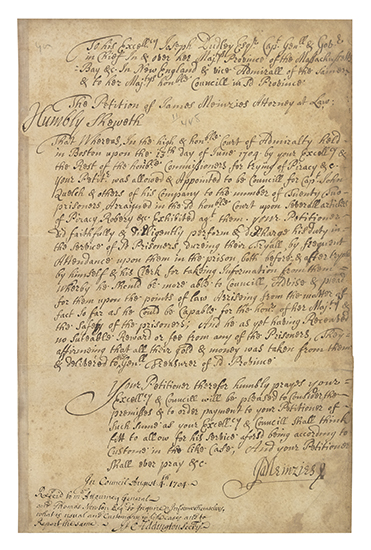 To his Excell:cy Joseph Dudley Esqr. Capt. Genll. & Govr.
in Chief In & over her Majts. Province of the Massachusetts
Bay &c. In New England & vice Admirall of the Same
& to her Majts. honble. Councill in sd. Province
The Petition of James Meinzies Attorney at Law:
Humbly Sheweth
That Whereas, In the high & honble. Court of Admiralty held
in Boston upon the 13th day of June 1704 by your Excell:cy &
the Rest of the honble. Commissioners for trying of Piracy &c.
Your Petitr. was allowed & Appointed to be Councill for Capt. John
Quelch & others of his Company to the number of Twenty Two
prisoners Arraigned in the sd. honble. Court upon Severall articles
of Piracy Robery &c. Exhibited agt. them, your Petitioner
did faithfully & diligently perform & discharge his duty in
the Service of sd. Prisoners, dureing their Tryall by frequent
Attendance upon them in the prison both before & after tryall
by himself & his Clerk for taking Information from them
Whereby he should be more able to Councill, Advise & plead
for them upon the points of law Arising from the matter of
fact So far as he could be Capable for the honor of her Majty. &
the Safety of the prisoners; And he as yet having Received
no Valuable Reward or fee from any of the Prisoners, They
affirming that all their gold & money was taken from them
& delivered to the Treasurer of sd. Province
Your Petitioner therefor humbly prayes your
Excell:cy & Councill will be pleased to Consider the
premisses & to order payment to your Petitioner of
Such Sume as your Excell:cy & Councill Shall think
fitt to allow for his Service aforsd. being according to
Custome in the like Case, And your Petitioner
Shall ever pray &c.
Ja: Meinzies
In Council August 4th. 1704
Referd to mr. Attourney General
and Thomas Newton Esqr. to
what is usual and Customary in
Report the same
Addington Secry.